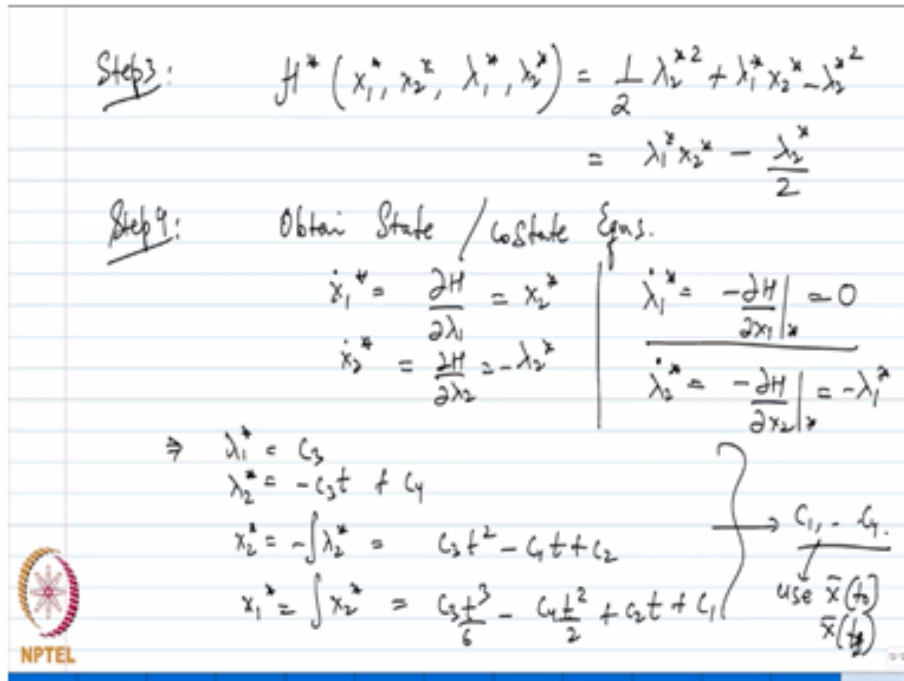 Step3: H* (x₁*, x₂*, λ₁*, λ₂*) = 1/2 λ₂*² + λ₁* x₂* - λ₂*²
= λ₁* x₂* - λ₂*/2
Step4: Obtain State / Costate Eqns.
ẋ₁* = ∂H/∂λ₁ = x₂*
λ̇₁* = -∂H/∂x₁|* = 0
ẋ₂* = ∂H/∂λ₂ = -λ₂*
λ̇₂* = -∂H/∂x₂|* = -λ₁*
⇒ λ₁* = C₃
λ₂* = -C₃t + C₄
x₂* = -∫λ₂* = C₃t² - C₄t + C₂
x₁* = ∫x₂* = C₃t³/6 - C₄t²/2 + C₂t + C₁
→ C₁, - C₄.
use x̄(t₀)
NPTEL